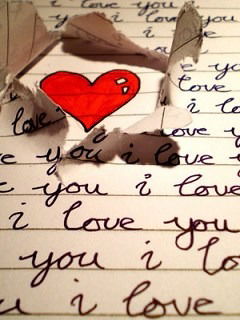 i love you i
you
e yo
i love
love i love
e you i love
e you i love
i love you
you i lo
u i love